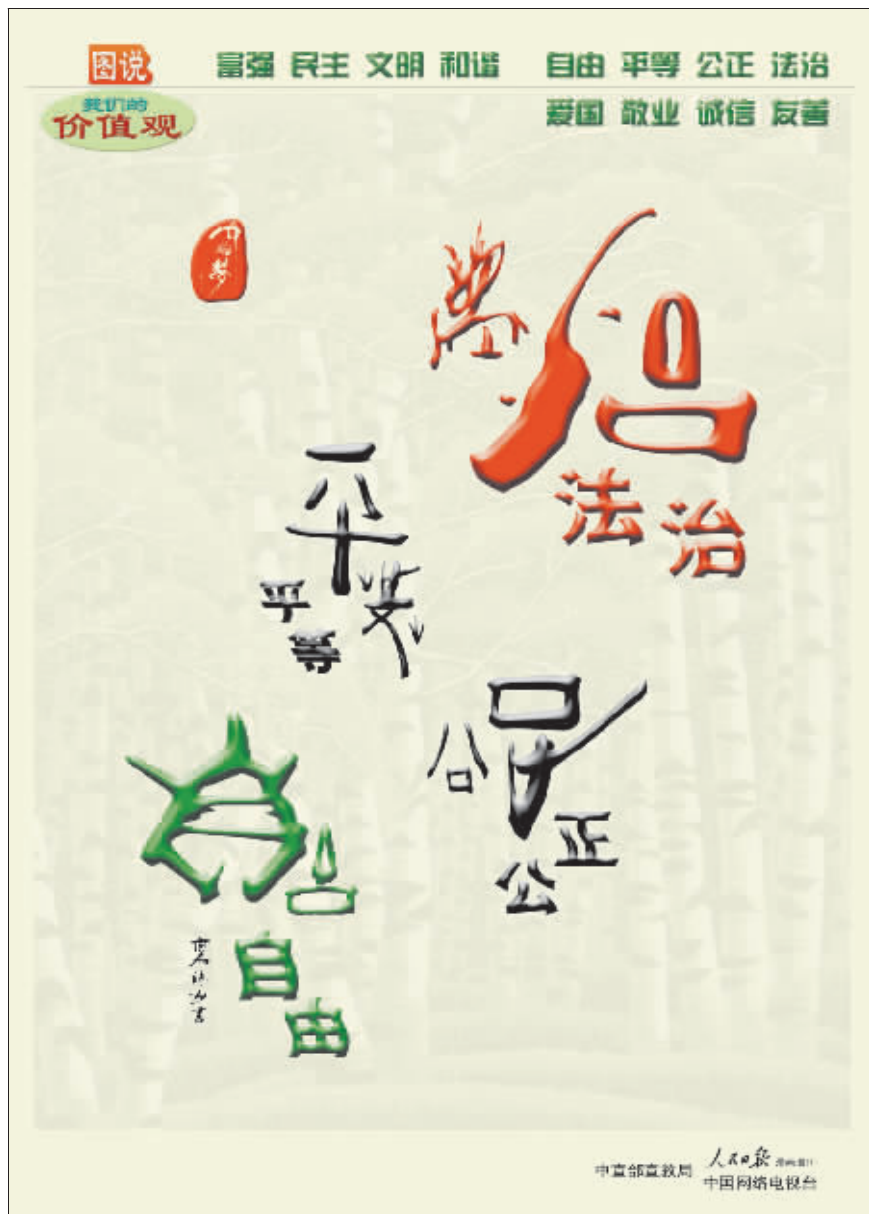 图说
我们的
价值观
富强 民主 文明 和谐 自由 平等 公正 法治
爱国 敬业 诚信 友善
法治
平等
公正
自由
中宣部宣教局
人民日报
中国网络电视台